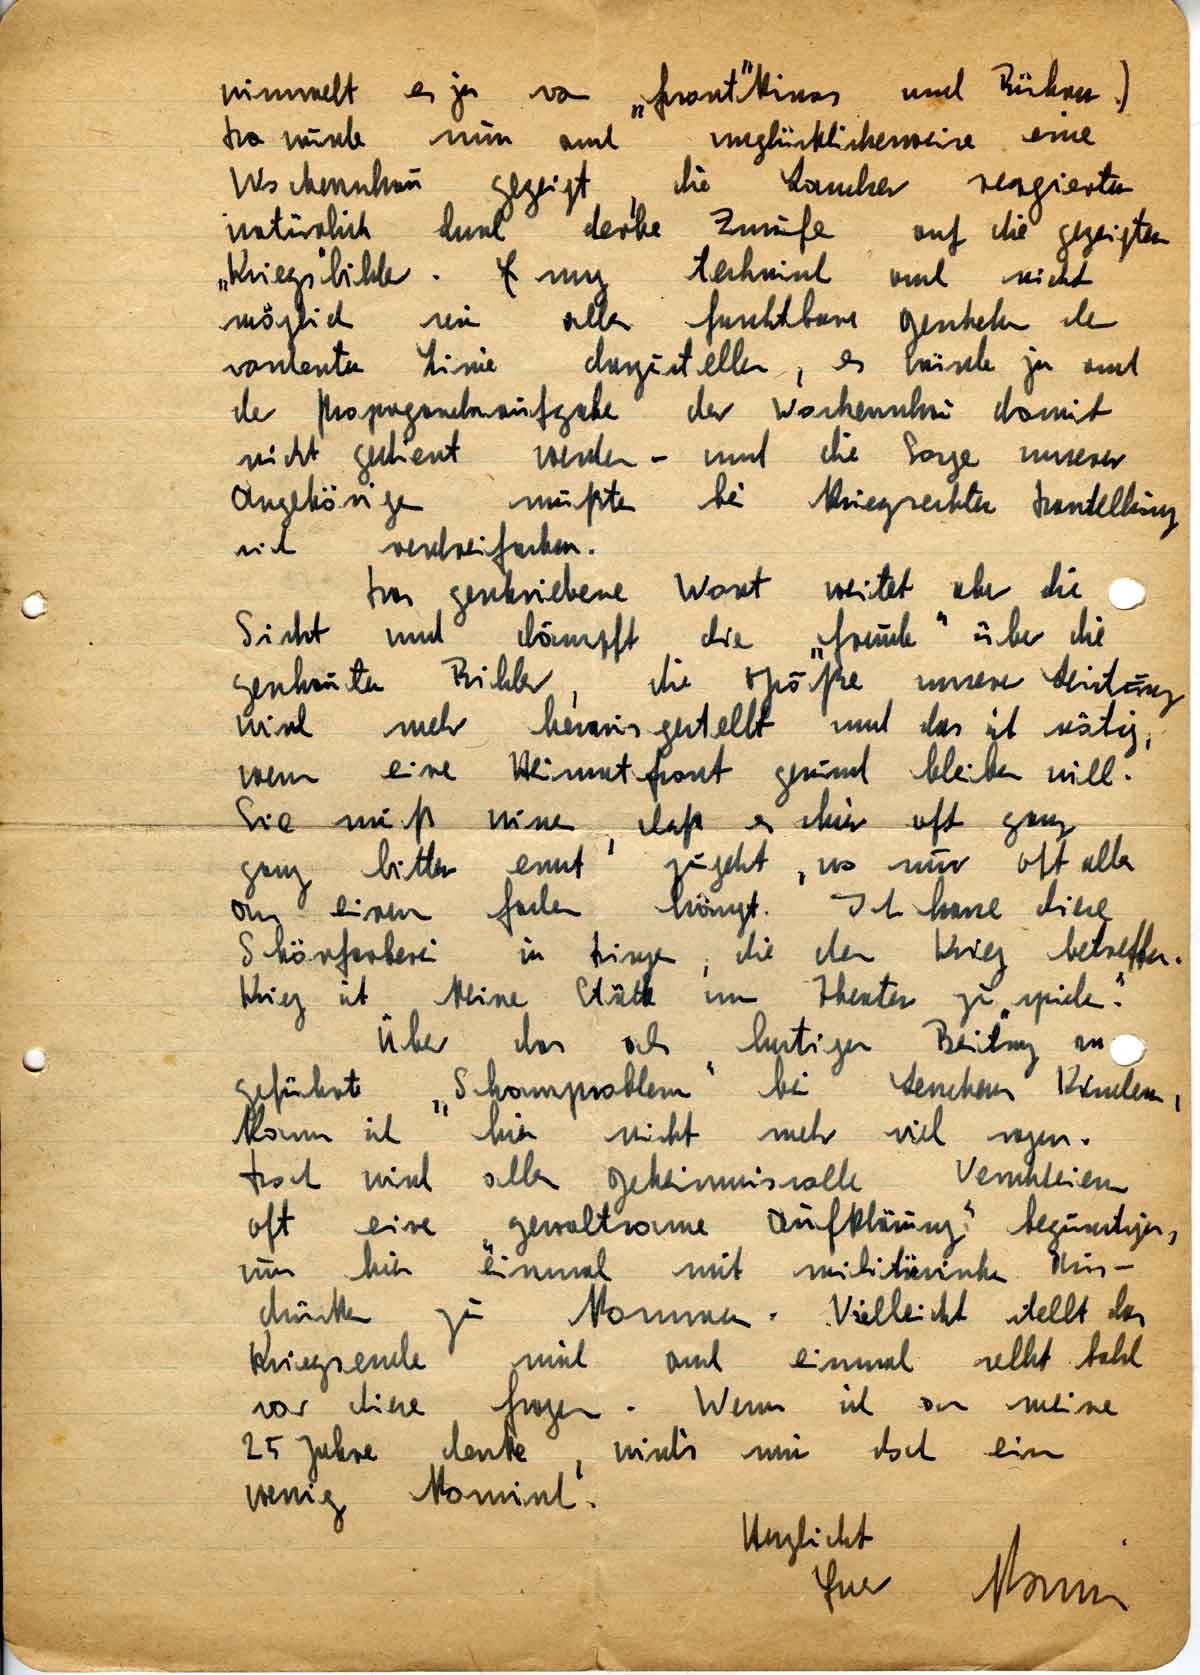 wimmelt es ja von „Front" Kinos und Bühnen.)
Da wurde nun auch unglücklicherweise eine
Wochenschau gezeigt, die Landser reagierten
natürlich durch derbe Zurufe auf die gezeigten
„Kriegs"bilder. Es mag technisch auch nicht
möglich sein alles furchtbare Geschehen der
vordersten Linie darzustellen, es würde ja auch
der Propagandaaufgabe der Wochenschau damit
nicht gedient werden – und die Sorge unserer
Angehörigen müßte bei kriegsechter Darstellung
sich verdreifachen.
Das geschriebene Wort weitet aber die
Sicht und dämpft die „Freude" über die
geschauten Bilder, die Größe unserer Leistung
wird mehr herausgestellt und das ist nötig,
wenn eine Heimatfront gesund bleiben will.
Sie muß wissen, daß es hier oft ganz
ganz bitter ernst zugeht, wo nur oft alles
an einem Faden hängt. Ich hasse diese
Schönfärberei in Dingen, die den Krieg betreffen.
Krieg ist keine Stück im Theater zu „spielen".
Über das als lustiger Beitrag an
geführte „Schamproblem" bei Lenchens Kindern,
kann ich hier nicht mehr viel sagen.
Doch wird alles geheimnisvolle Verschleiern
oft eine „gewaltsame Aufklärung" begünstigen,
um hier einmal mit militärischen Aus-
drücken zu kommen. Vielleicht stellt das
Kriegsende mich auch einmal selbst bald
vor diese Fragen. Wenn ich an meine
25 Jahre denke, wird's mir doch ein
wenig komisch.
Herzlichst
Euer